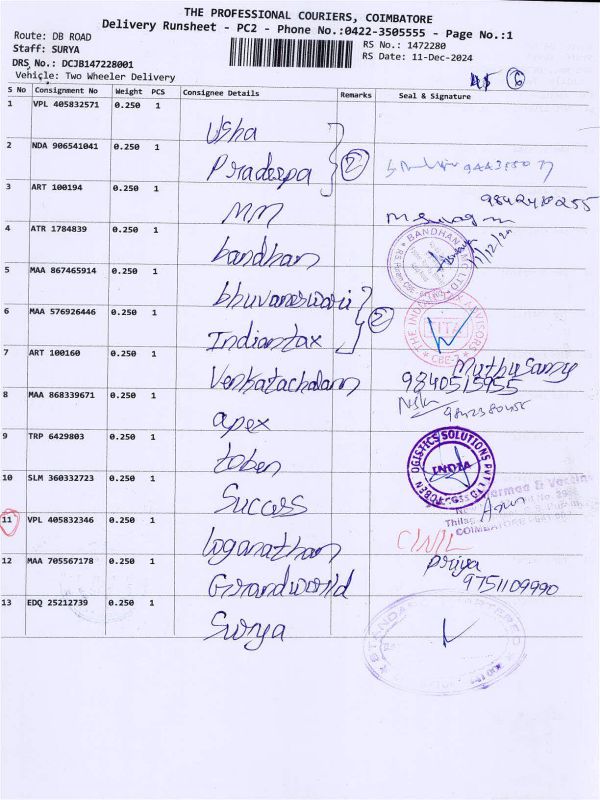 THE PROFESSIONAL COURIERS, COIMBATORE
Delivery Runsheet - PC2 - Phone No.:0422-3505555 - Page No.:1
Route: DB ROAD
Staff: SURYA
RS No.: 1472280
DRS No.: DCJB147228001
RS Date: 11-Dec-2024
Vehicle: Two Wheeler Delivery
6
S No Consignment No Weight PCS Consignee Details Remarks Seal & Signature
1 VPL 405832571 0.250 1 Usha
2 NDA 906541041 0.250 1 Pradeepa
3 ART 100194 0.250 1 MM
4 ATR 1784839 0.250 1 bandhan
5 MAA 867465914 0.250 1 bhuvaneswari
6 MAA 576926446 0.250 1 Indiantax
7 ART 100160 0.250 1 Venkatachalam Muthusamy
9840515955
8 MAA 868339671 0.250 1 apex
9 TRP 6429803 0.250 1 toben
TOBEN LOGISTICS SOLUTIONS PVT LTD
INDIA
10 SLM 360332723 0.250 1 Success
11 VPL 405832346 0.250 1 loganathan
12 MAA 705567178 0.250 1 Grandworld Priya
9751109990
13 EDQ 25212739 0.250 1 Surya